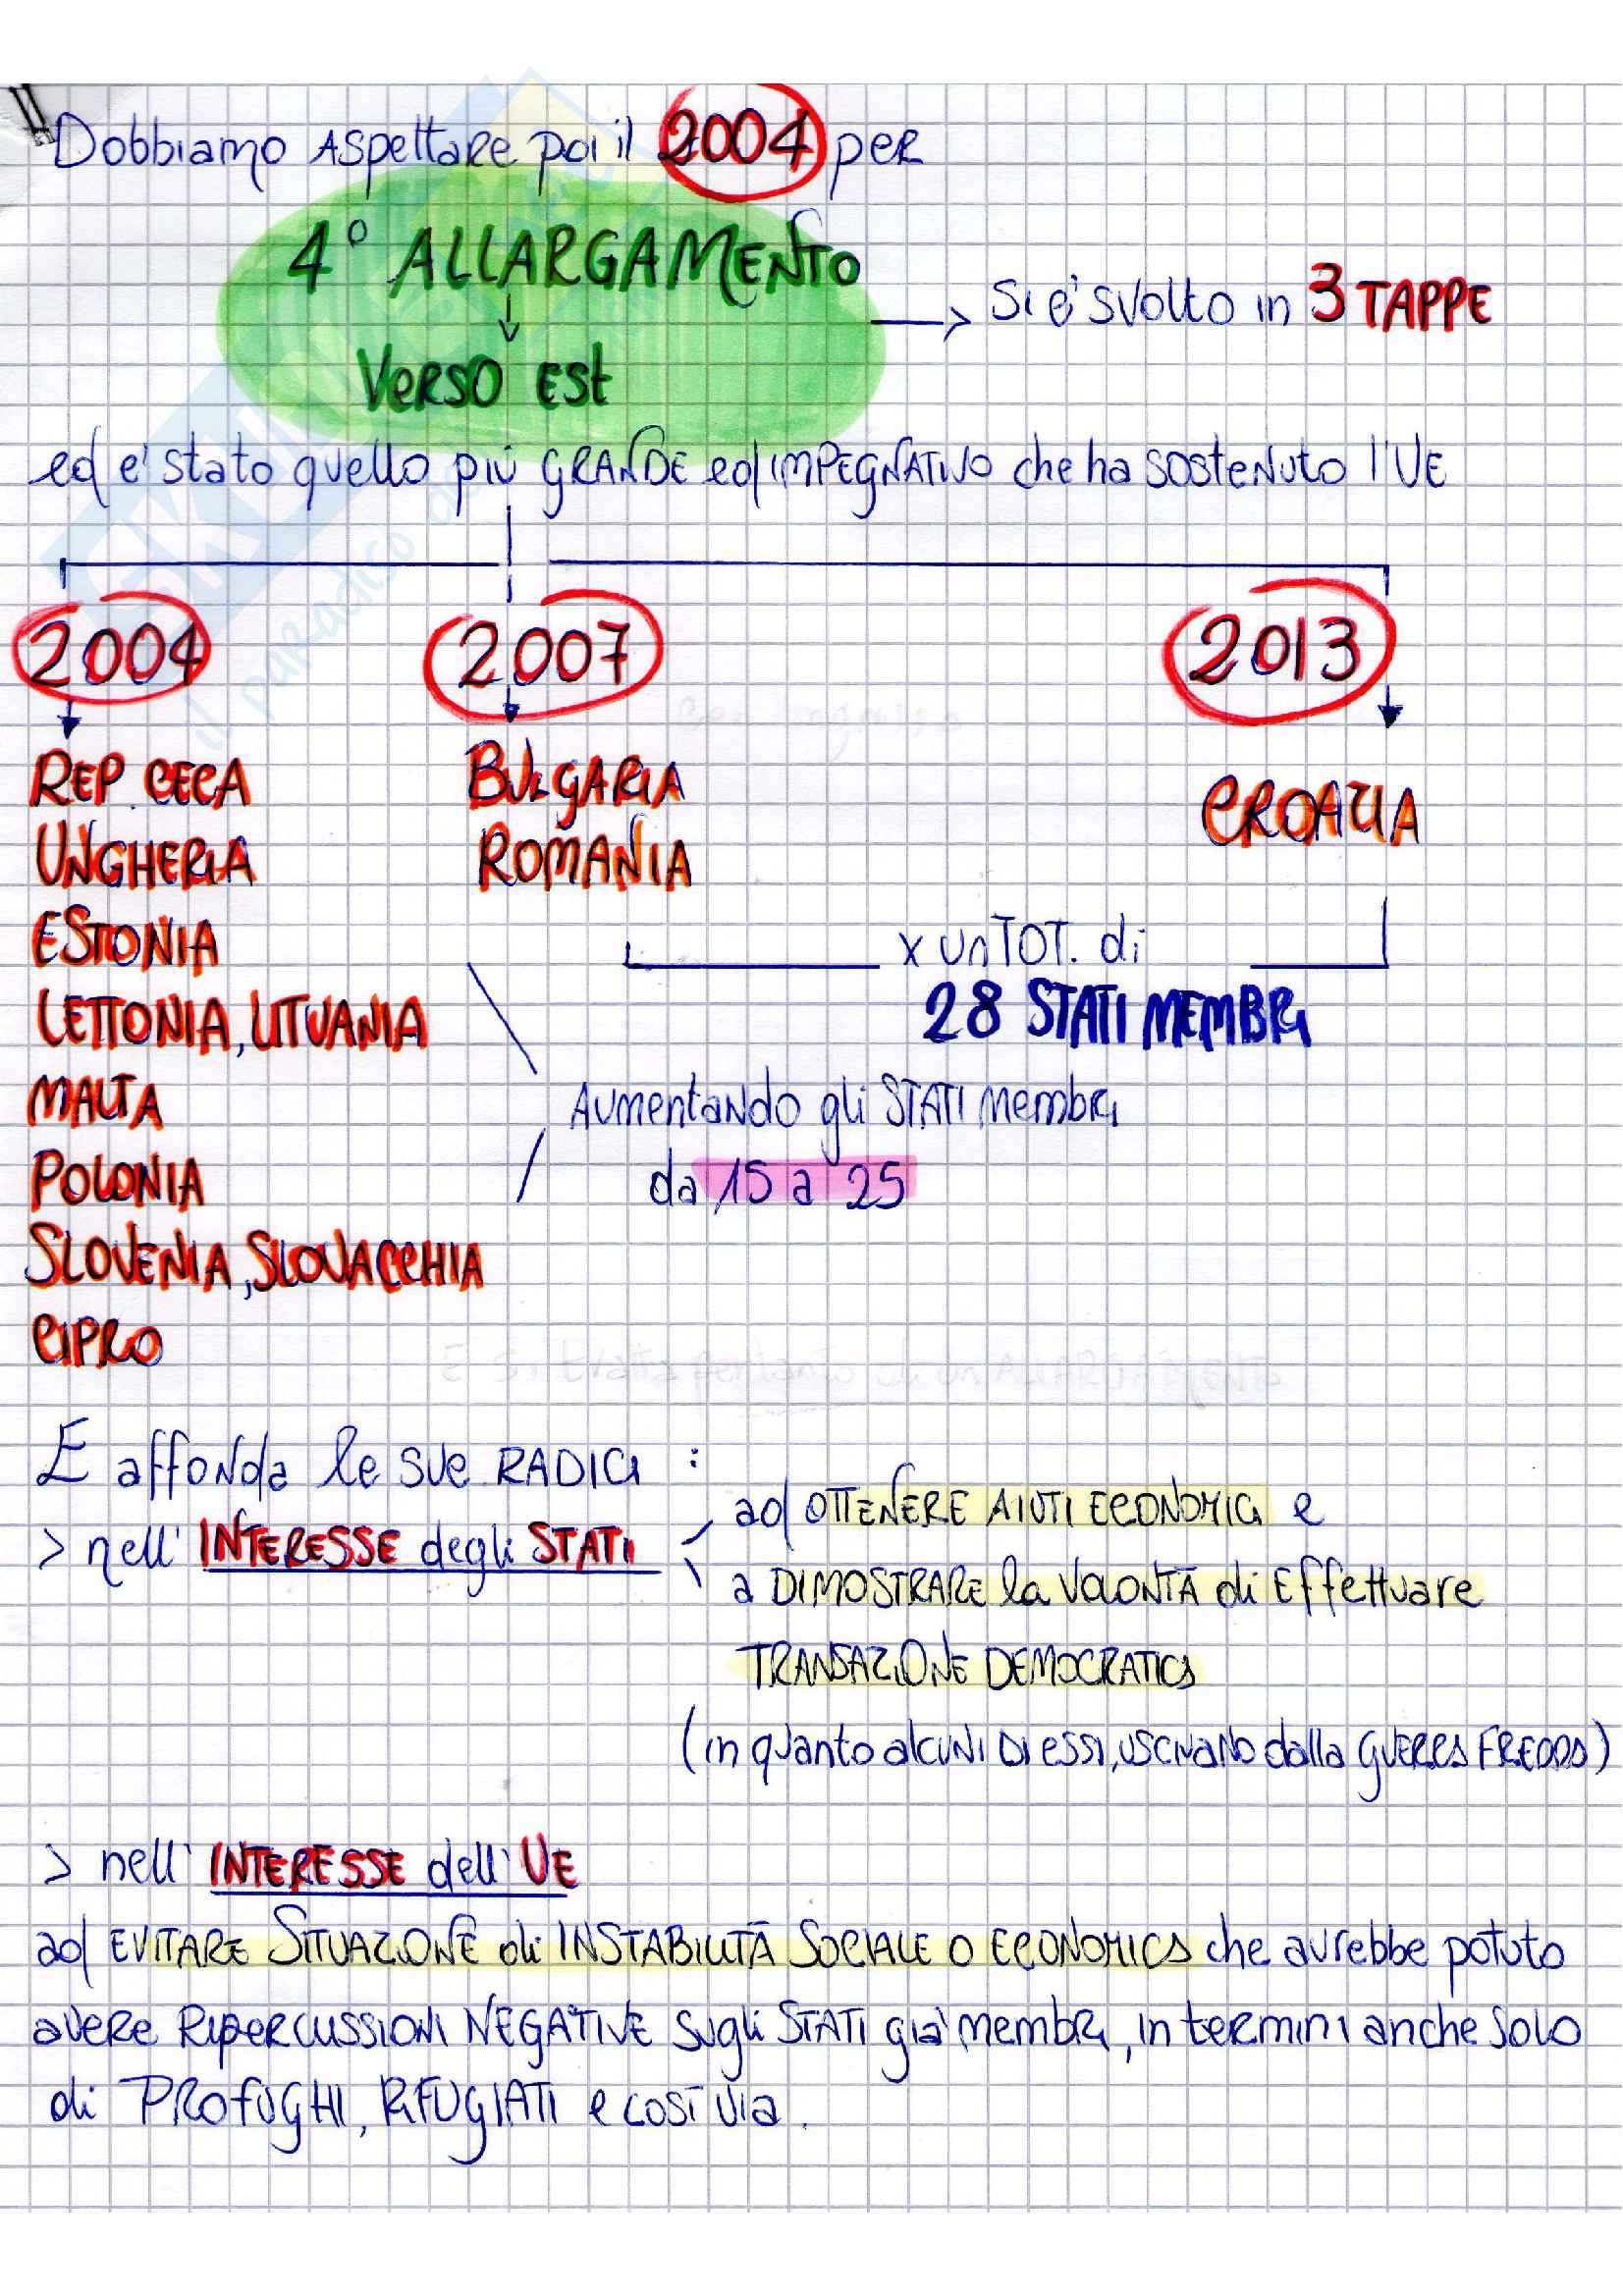 Dobbiamo ASpettare poi il 2004 per
4° ALLARGAMENTO
↓
VERSO EST
→ Si è svolto in 3 TAPPE
ed è stato quello più GRANDE ed IMPEGNATIVO che ha sostenuto l'UE
2004
2007
2013
REP. CECA
UNGHERIA
ESTONIA
LETTONIA, LITUANIA
MALTA
POLONIA
SLOVENIA, SLOVACCHIA
CIPRO
BULGARIA
ROMANIA
CROAZIA
x un TOT. di
28 STATI MEMBRI
Aumentando gli STATI membri
da 15 a 25
E affonda le sue RADICI :
> nell' INTERESSE degli STATI
ad OTTENERE AIUTI ECONOMICI e
a DIMOSTRARE la VOLONTÀ di Effettuare
TRANSAZIONE DEMOCRATICA
(in quanto alcuni di essi, uscivano dalla GUERRA FREDDA)
> nell' INTERESSE dell' UE
ad EVITARE SITUAZIONE di INSTABILITÀ SOCIALE O ECONOMICA che avrebbe potuto
avere RipercussIONI NEGATIVE sugli STATI già membri, in termini anche solo
di PROfUGHI, RIFUGIATI e così via.
SKUOLA
il paradiso